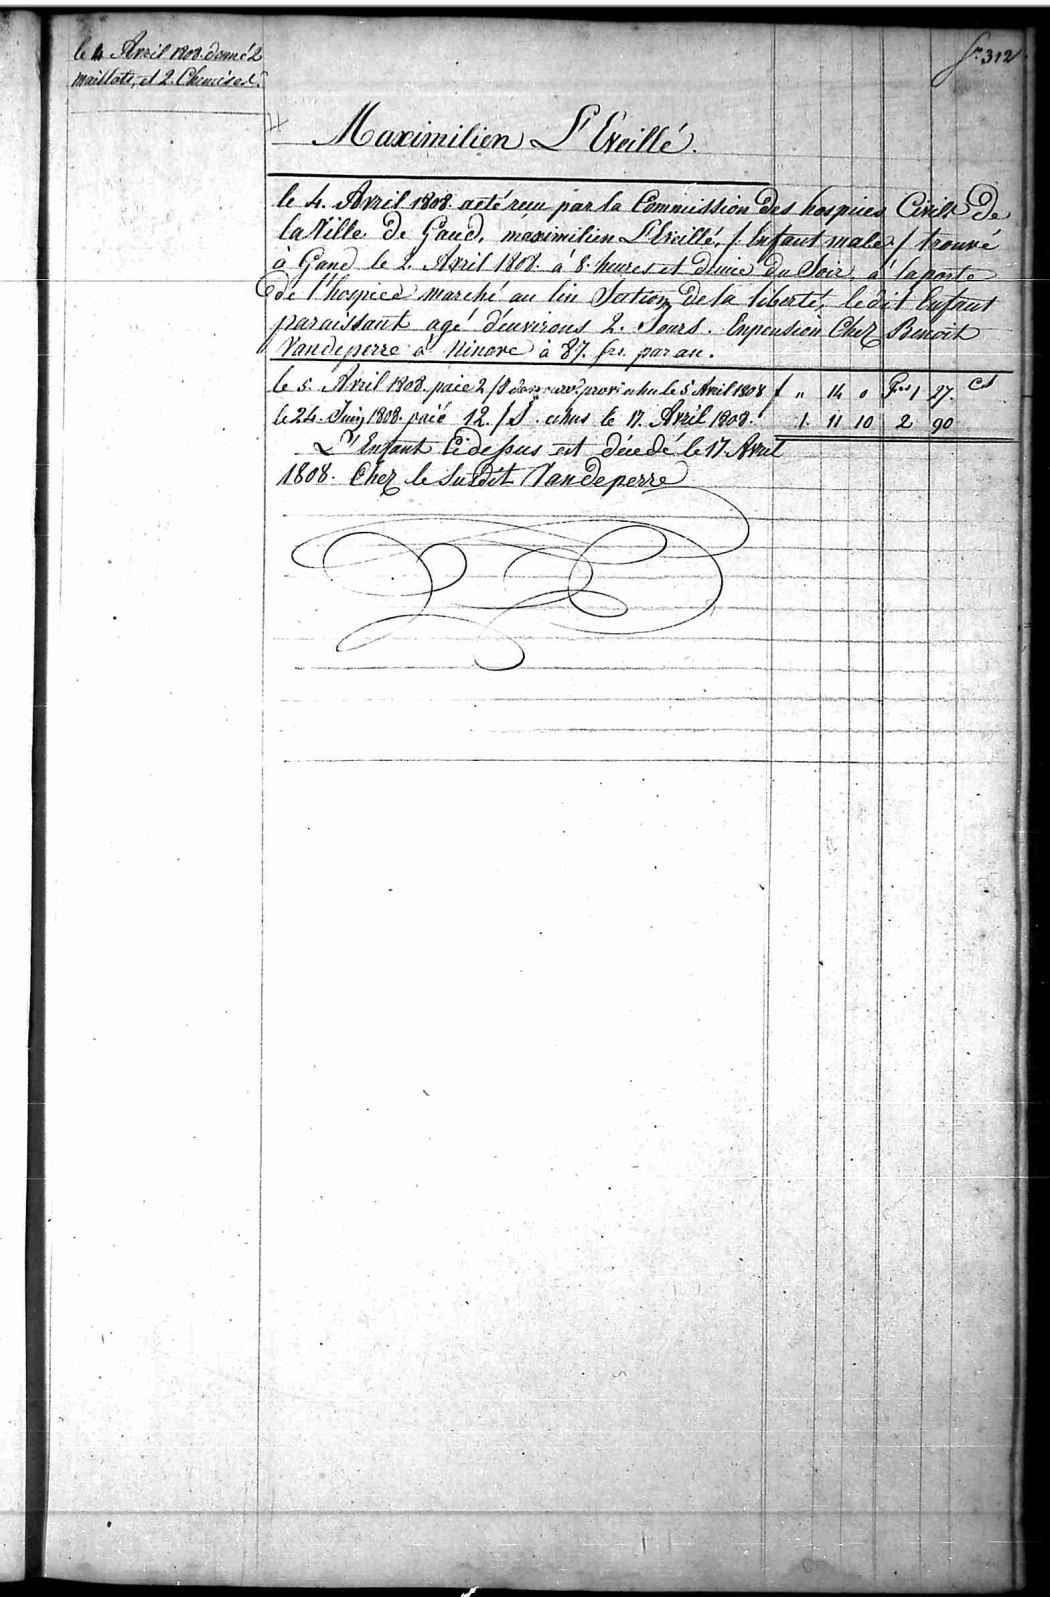 le 4 Avril 1808. donné 2
maillots, et 2. Chemises.
f.° 312
Maximilien L'Eveillé.
le 4. Avril 1808. a eté recu par la Commission des hospices Civils De
la Ville de Gand, maximilien L'Eveillé, /. Enfant male / trouvé
à Gand le 2. Avril 1808. à 8. heures et demie du Soir, à la porte
de l'hospice marché au lin Section de la liberté, ledit Enfant
paraissant agé d'environs 2. Jours. Enpension Chez Benoit
Vandeperre à Ninove à 87. frs. par an.
le 5. Avril 1808. paié 2 echu le 5 Avril 1808 f " 14 0 Frs 1 27. cs
le 24. Juin 1808. paié 12. echus le 17. Avril 1808. 1. 11 10 2 90
L'Enfant Cidessus est décedé le 17. Avril
1808. Chez le Susdit Vandeperre